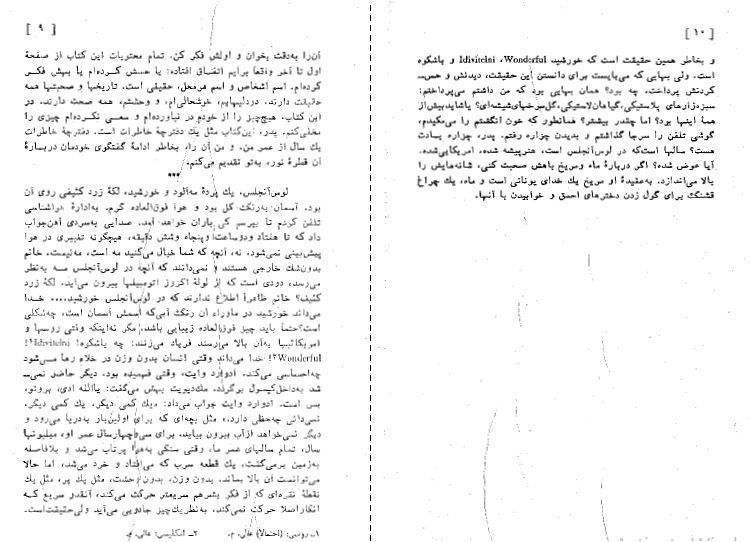 [ ۹ ]
آن‌را به‌دقت بخوان و اولش فکر کن. تمام محتویات این کتاب از صفحهٔ
اول تا آخر واقعاً برایم اتفاق افتاده: یا حسش کرده‌ام یا بهش فکر
کرده‌ام. اسم اشخاص و اسم محل، حقیقی است. تاریخها و صحبتها همه
حقایت دارند. دودلیهایم، خوشحالی‌ام، و وحشتم، همه صحت دارند. در
این کتاب، هیچ‌چیز را از خودم در نیاورده‌ام و سعی نکرده‌ام چیزی را
مخفی‌کنم. پدر، این‌کتاب مثل یك دفترچهٔ خاطرات است. دفترچهٔ خاطرات
یك سال از عمر من. و من آن را، بخاطر ادامهٔ گفتگوی خودمان دربارهٔ
آن قطرهٔ نور، به‌تو تقدیم می‌کنم.
***
لوس‌آنجلس. یك پردهٔ مه‌آلود و خورشید، لکهٔ زرد کثیفی روی آن
بود. آسمان به‌رنگ گل بود و هوا فوق‌العاده گرم. به‌ادارهٔ هواشناسی
تلفن کردم تا بپرسم کی باران خواهد آمد. صدایی به‌سردی آهن‌جواب
داد که تا هفتاد ودوساعت وپنجاه وشش دقیقه، هیچگونه تغییری در هوا
پیش‌بینی نمی‌شود. نه، آنچه که شما خیال می‌کنید مه است، مه‌نیست. خانم
بدون‌شك خارجی هستند و نمی‌دانند که آنچه در لوس‌آنجلس مه به‌نظر
می‌رسد، دودی است که از لولهٔ اگزوز اتومبیلها بیرون می‌آید. لکهٔ زرد
کثیف؟ خانم ظاهراً اطلاع ندارند که در لوس‌آنجلس خورشید.... خدا
می‌داند خورشید در ماوراء آن رنگ آبی‌که اسمش آسمان است، چه‌شکلی
است؟حتماً باید چیز فوق‌العاده زیبایی باشد. مگر نه‌اینکه وقتی روسها و
امریکائیها به‌آن بالا می‌رسند فریاد می‌زنند: چه باشکوه! Idivitelni۱!
Wonderful۲! خدا می‌داند وقتی انسان بدون وزن در خلاء رها می‌شود
چه‌احساسی می‌کند. ادوارد وایت، وقتی فهمیده بود، دیگر حاضر نمی‌ـ
شد به‌داخل‌کپسول برگردد. مك‌دیویت بهش می‌گفت: یاالله ادی، برو‌تو،
بس است. ادوارد وایت جواب می‌داد: «یك کمی دیگر، یك کمی دیگر.
نمی‌دانی چه‌حظی دارد.» مثل بچه‌ای که برای اولین‌بار به‌دریا می‌رود و
دیگر نمی‌خواهد ازآب بیرون بیاید. برای سی‌وچهارسال عمر او، میلیونها
سال، تمام سالهای عمر ما، وقتی سنگی به‌هوا پرتاب می‌شد و بلافاصله
به‌زمین برمی‌گشت، یك قطعه سرب که می‌افتاد و خرد می‌شد، اما حالا
می‌توانست آن بالا بماند، بدون وزن، بدون وحشت، مثل یك پر، مثل یك
نقطهٔ نقره‌ای که از فکر بشرهم سریعتر حرکت می‌کند، آنقدر سریع که
انگار‌اصلا حرکت نمی‌کند، به‌نظریك‌چیز جادویی می‌آید ولی‌حقیقت‌است.
۱ــ روسی: (احتمالاً) عالی. م. ۲ــ انگلیسی: عالی. م.
[ ۱۰ ]
و بخاطر همین حقیقت است که خورشید Idivitelni ،Wonderful و باشکوه
است. ولی بهایی که می‌بایست برای دانستن این حقیقت، دیدنش و حس‌ــ
کردنش پرداخت، چه بود؟ همان بهایی بود که من داشتم می‌پرداختم:
سبزه‌زارهای پلاستیکی،گیاهان‌لاستیکی،گل‌سرخهای‌شیشه‌ای؟ یاشایدبیش‌از
همهٔ اینها بود؟ اما چقدر بیشتر؟ همانطور که خون انگشتم را می‌مکیدم،
گوشی تلفن را سرجا گذاشتم و بدیدن چزاره رفتم. پدر، چزاره یادت
هست؟ سالها است‌که در لوس‌آنجلس است، هنرپیشه شده، امریکایی‌شده.
آیا عوض شده؟ اگر دربارهٔ ماه ومریخ باهش صحبت کنی، شانه‌هایش را
بالا می‌اندازد. به‌عقیدهٔ او مریخ یك خدای یونانی است و ماه، یك چراغ
قشنگ برای گول زدن دخترهای احمق و خوابیدن با آنها.